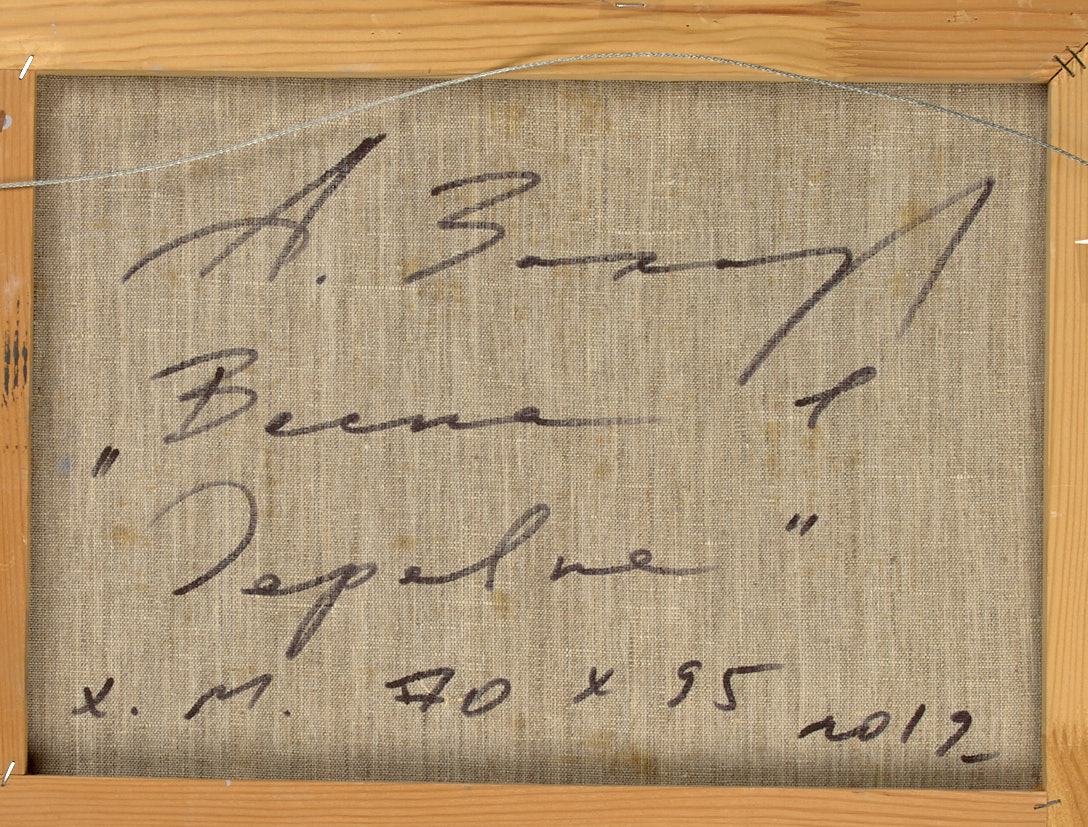 А.
"Весна в
Деревне"
х. м. 70 х 95
2012